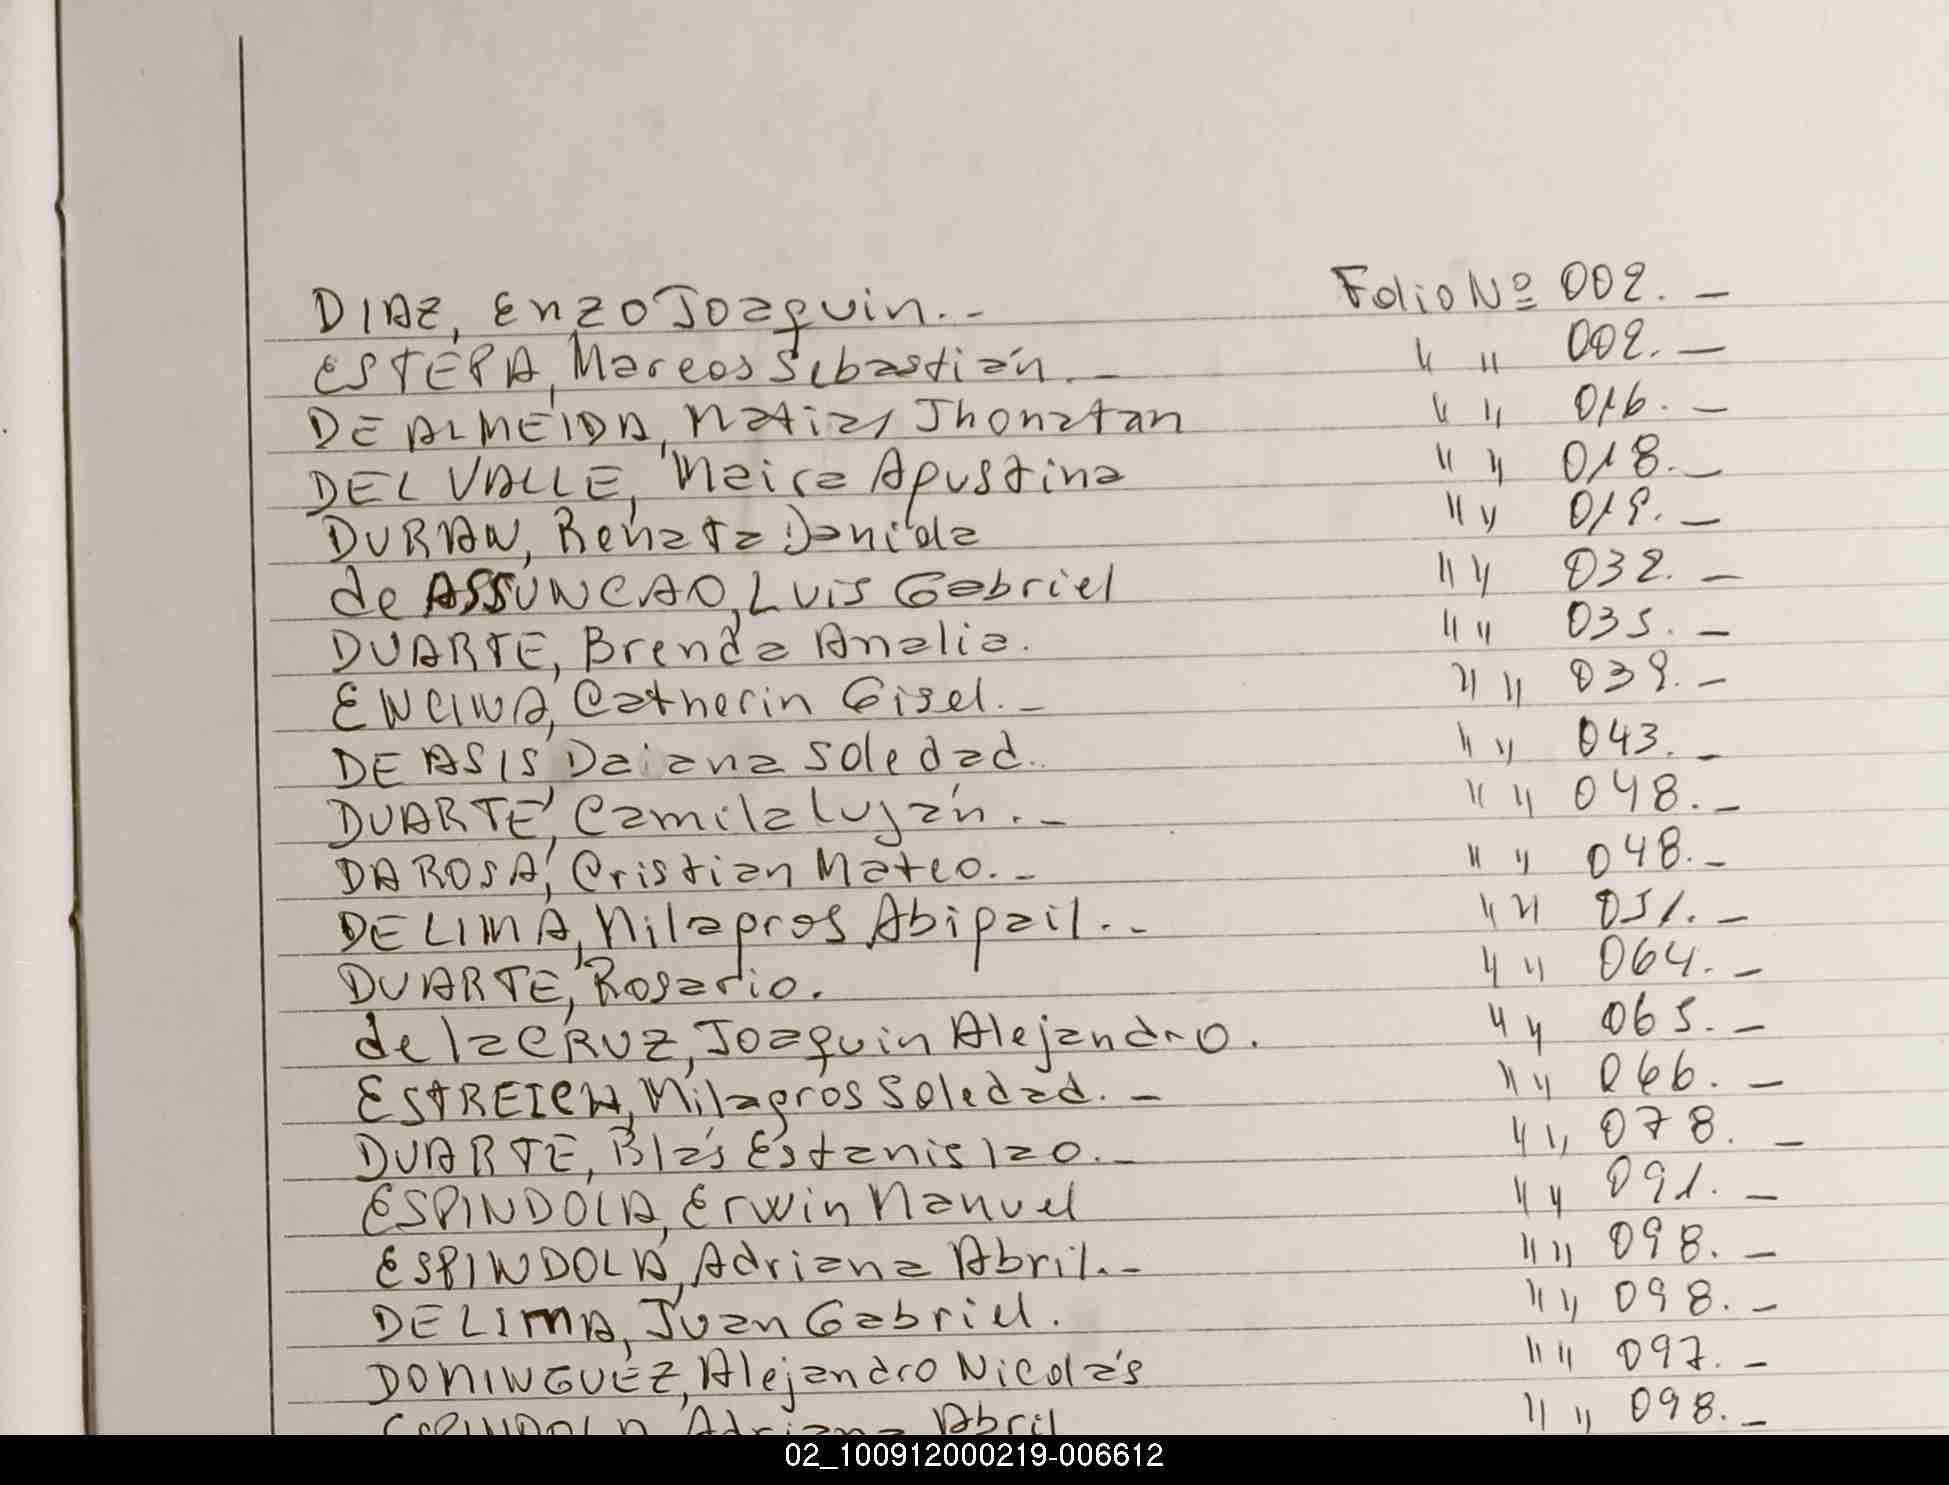 DIAZ, Enzo Joaquin.- Folio Nº 002.-
ESTEPA, Marcos Sebastián.- " " 002.-
DE ALMEIDA, Matias Jhonatan " " 016.-
DEL VALLE, Maira Agustina " " 018.-
DURAN, Renata Daniela " " 019.-
de ASSUNCAO, Luis Gabriel " " 032.-
DUARTE, Brenda Analia. " " 035.-
ENCINA, Catherin Gisel.- " " 039.-
DE ASIS, Daiana Soledad.. " " 043.-
DUARTE, Camila Luján.- " " 048.-
DA ROSA, Cristian Mateo.- " " 048.-
DE LIMA, Milagros Abigail.- " " 051.-
DUARTE, Rosario. " " 064.-
de la CRUZ, Joaquin Alejandro. " " 065.-
ESTREICH, Milagros Soledad.- " " 066.-
DUARTE, Blás Estanislao.- " " 078.-
ESPINDOLA, Erwin Manuel " " 091.-
ESPINDOLA, Adriana Abril.- " " 098.-
DE LIMA, Juan Gabriel. " " 098.-
DOMINGUEZ, Alejandro Nicolás " " 097.-
ESPINDOLA, Adriana Abril " " 098.-
02_100912000219-006612